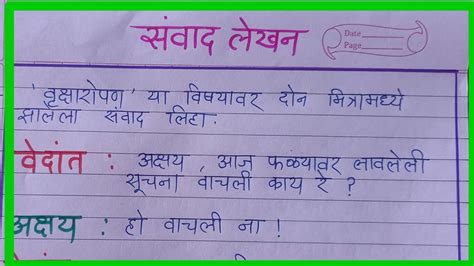 संवाद लेखन
Date
Page
'वृक्षारोपण' या विषयावर दोन मित्रामध्ये
झालेला संवाद लिहा.
वेदांत : अक्षय , आज फळ्यावर लावलेली
सूचना वाचली काय रे ?
अक्षय : हो वाचली ना !